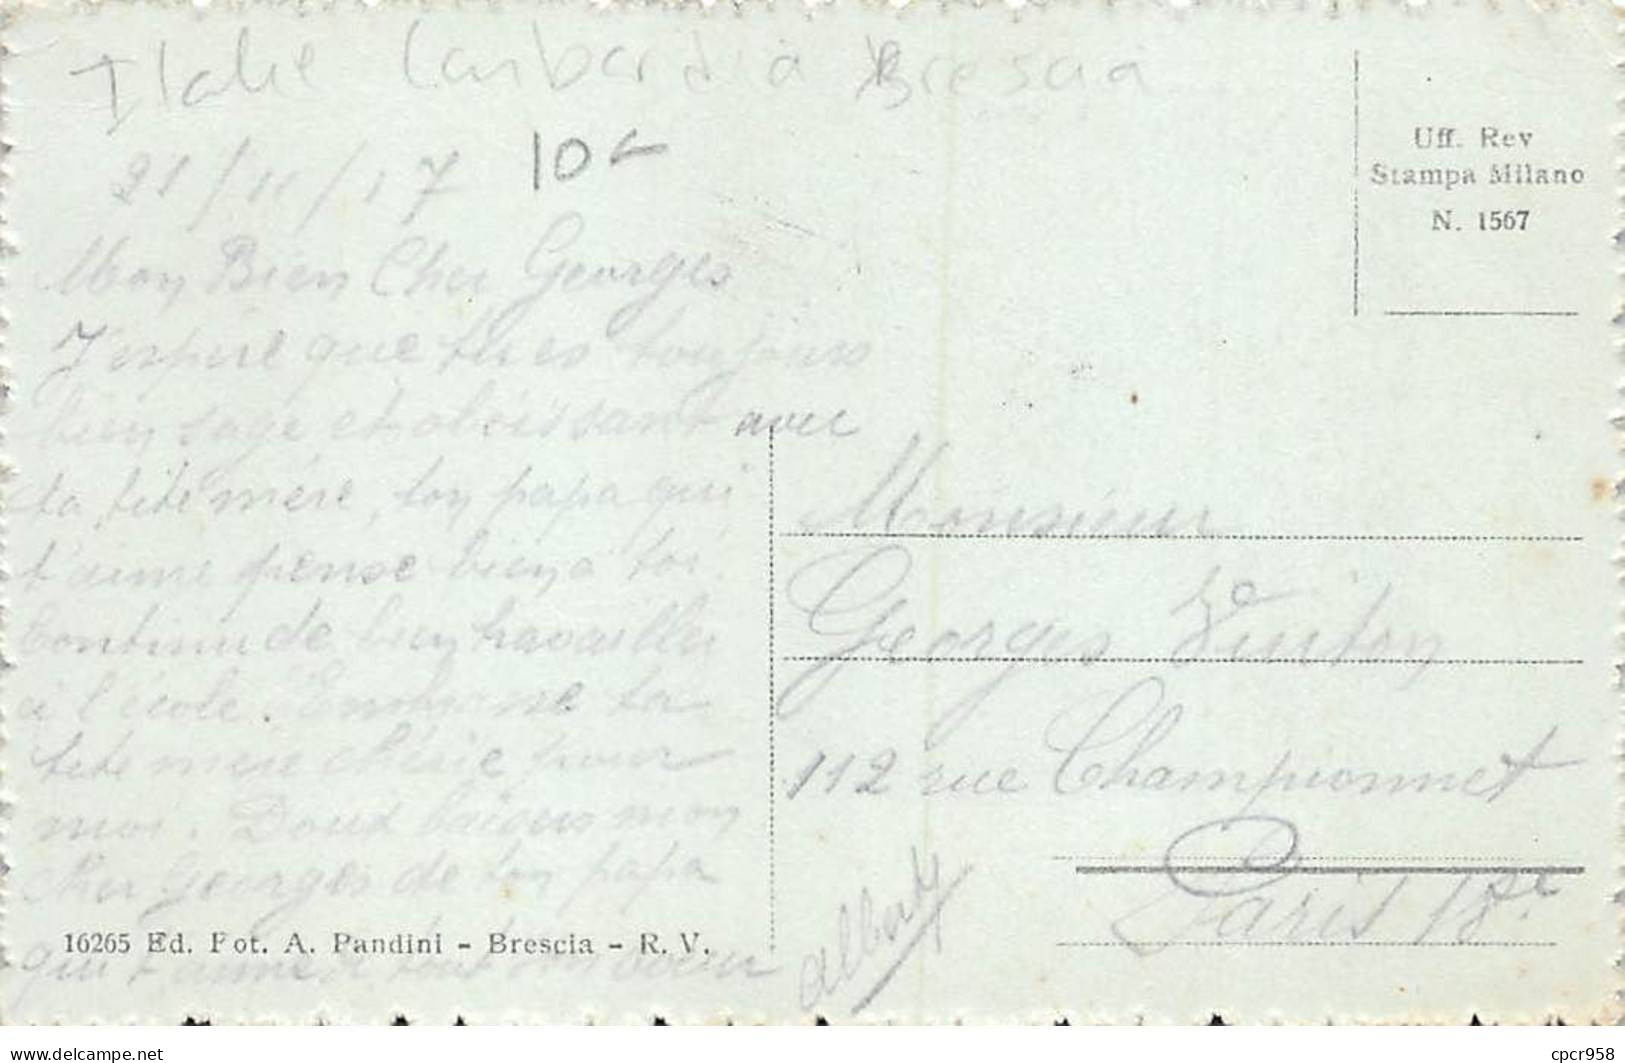 Italie Lombardia Brescia
21/11/17 10
Uff. Rev
Stampa Milano
N. 1567
Mon Bien Cher Georges
J'espère que tu es toujours
bien sage et obéissant avec
ta tite mère, ton papa qui
t'aime pense bien a toi.
Continu de bien travailler
a l'école. Embrasse ta
tite mère chérie pour
moi. Doux baisers mon
cher Georges de ton papa
qui t'aime de tout son cœur
Albert
Monsieur
Georges
112 rue Championnet
Paris 18e
16265 Ed. Fot. A. Pandini - Brescia - R. V.
delcampe.net
cpcr958